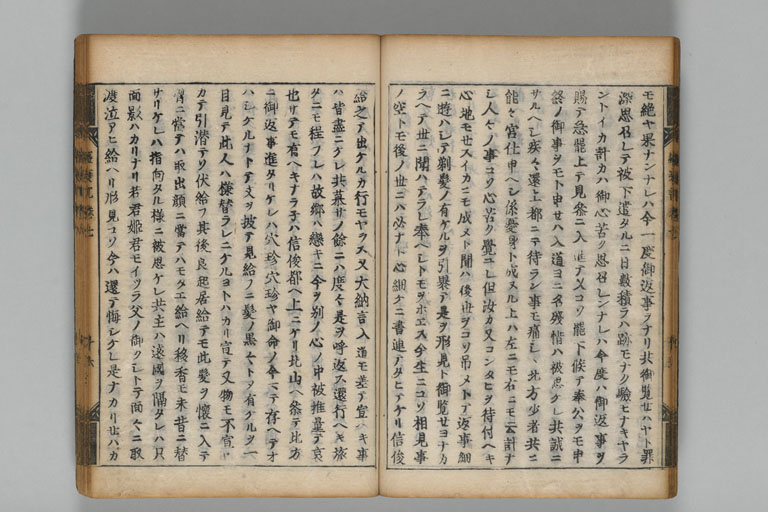 モ絶ヤ果ナンナレハ今一度御返事ヲナリ共御覧セハヤト罪
深思召レテ被下遣タルニ日数積ラハ跡モナク験ヒナキヤラ
ントイカ計カハ御心苦思召レンナレハ今度ハ御返事ヲ
賜テ急罷上テ見参ニ入進テ又コソ罷下候テ奉公ヲモ申
終ノ御事ヲモト申セハ入道ヨニ名残惜ハ被思ケレ共誠ニ
サルヘシ疾々還上都ニテ待ラン事モ痛シ北方少者共ニ
能々宮仕申ヘシ係憂身ト成ヌル上ハ左ニモ右ニモ云計ナ
シ人々ノ事コソ心苦ク覚ユレ但汝カ又コンタヒヲ待付ヘキ
心地モセスイカニモ成ヌト聞ハ後世ヲコソ吊メトテ返事細
ニ遊ハシテ剃髪ノ有ケルヲ引裹テ是ヲ形見ト御覧セヨナカ
ラヘテ世ニ聞ハテラレ奉ヘシトモヲホエス今生ニコソ相見事
ノ空トモ後ノ世ニハ必ナト心細ケニ書連アタヒテケリ信俊
給之テ出ケルカ行モヤラス又大納言入道モ差テ宣ヘキ事
ハ皆盡ニケレ共慕サノ餘ニハ度々是ヲ呼返ス還行ヘキ旅
タニモ程フレハ故郷ハ戀キニ今ヲ別ノ心ノ中被推量テ哀
也サテモ有ヘキナラネハ信俊都ヘ上ニケリ北山ヘ参テ北方
ニ御返事進タリケレハ穴珍穴珍ヤ御命ノ今マテ存ヘテオ
ハシケルナトテ文ヲ披テ見給フニ髪ノ黒々トヲ有ケルヲ一
目見テ此人ハ様替ラレニケルヨトハカリ宣テ又物モ不宣ヤ
カテ引潜テソ伏給フ其後良起居給テモ此髪ヲ懐ニ入テ
胷ニ當テハ取出顔ニ當テハモタエ給ヘリ移香モ未昔ニ替
サリケレハ指向タル様ニ被思ケレ共主ハ遠國ヲ隔タレハ只
面影ハカリナリ若君姫君モイツラ父ノ御クシトテ面々ニ取
渡泣アヒ給ヘリ形見コソ今ハ還テ悔シケレ是ナカリセハカ